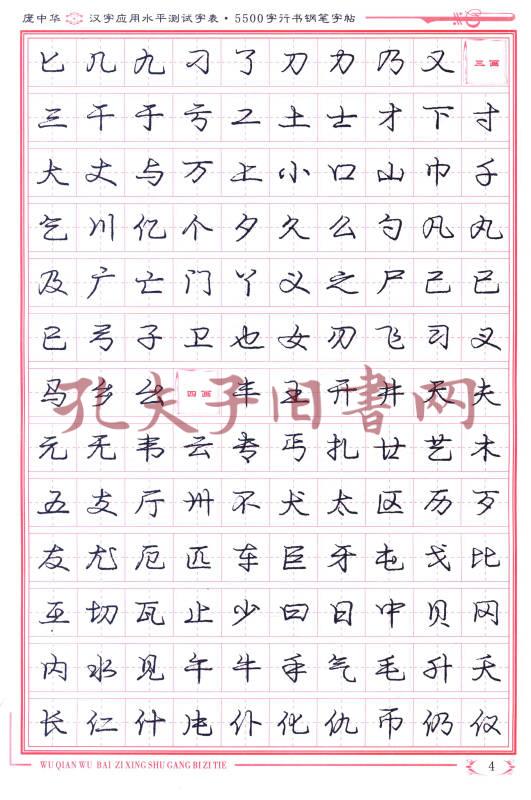 庞中华 汉字应用水平测试字表·5500字行书钢笔字帖
匕几九刁了刀力乃又 三画
三干于亏工土士才下寸
大丈与万上小口山巾千
乞川亿个夕久么勺凡丸
及广亡门丫义之尸己已
巳弓子卫也女刃飞习叉
马乡幺 四画 丰王开井天夫
元无韦云专丐扎廿艺木
五支厅卅不犬太区历歹
友尤厄匹车巨牙屯戈比
互切瓦止少曰日中贝冈
内水见午牛手气毛升夭
长仁什片仆化仇币仍仅
孔夫子旧书网
WU QIAN WU BAI ZI XING SHU GANG BI ZI TIE
4